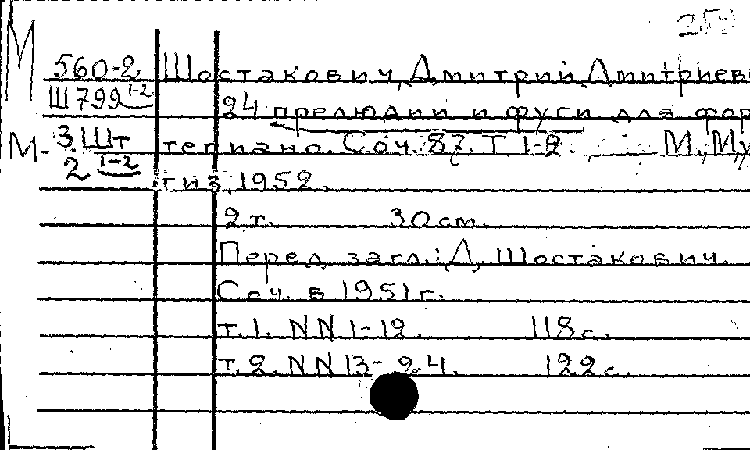 М
560-2 Шостакович, Дмитрий Дмитриев
Ш799 1-2 24 прелюдии и фуги для фор
М- 3.Шт тепиано. Соч. 87. Т 1-2. М., Му
2 1-2 гиз, 1952.
2 т. 30 см.
Перед загл.: Д. Шостакович.
Соч. в 1951 г.
т. 1. NN 1-12. 118 с.
т. 2. NN 13-24. 122 с.